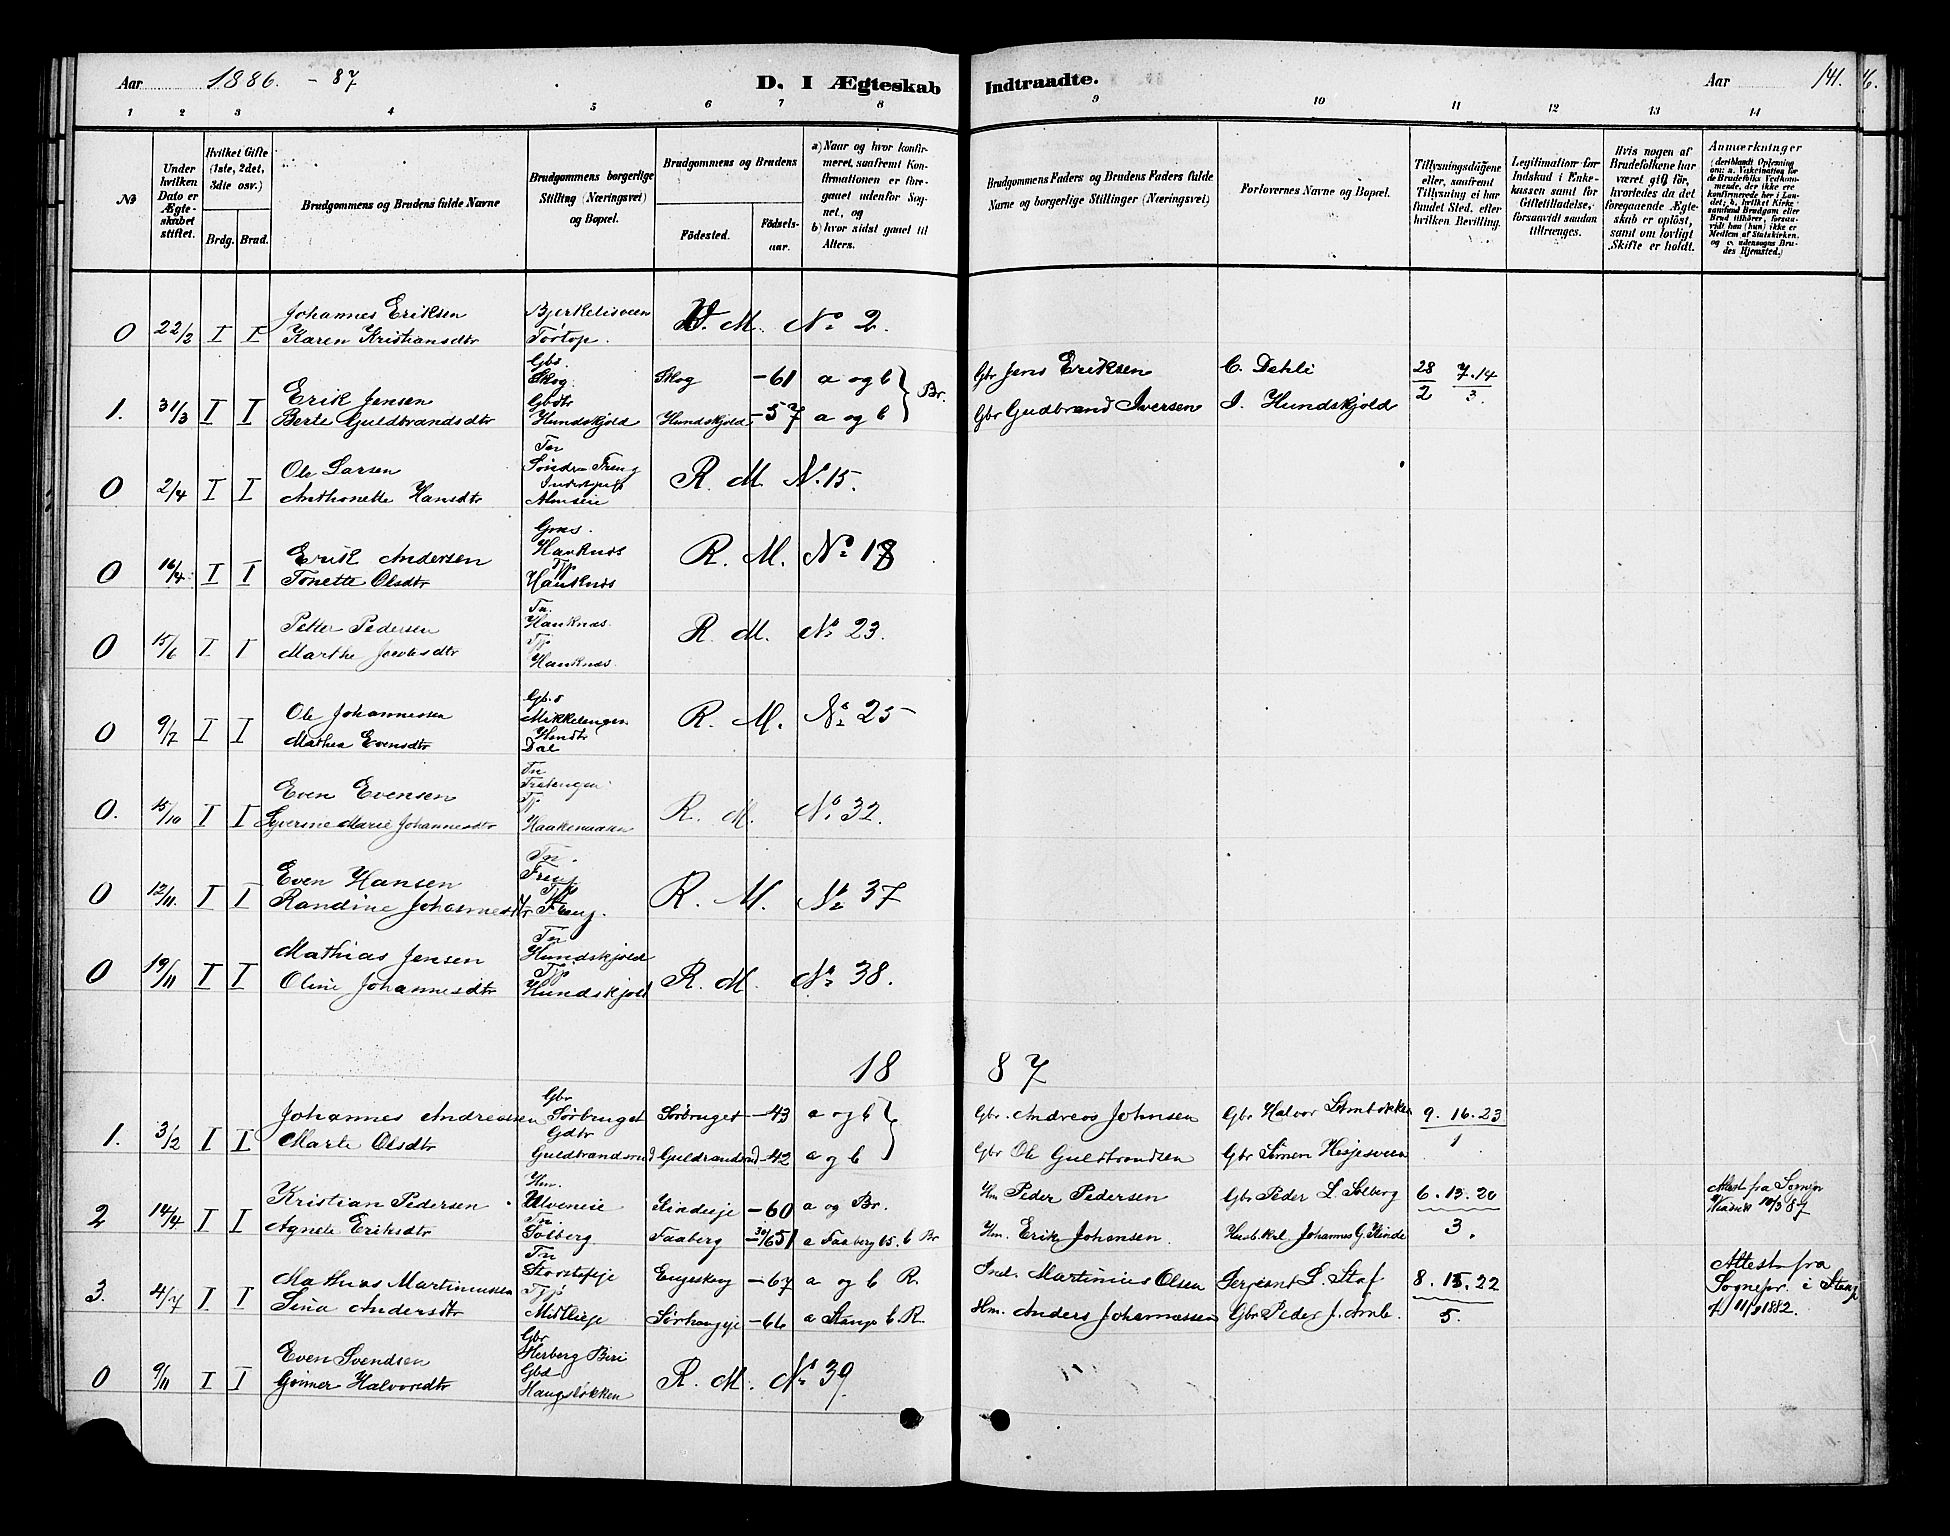 Aar 1886. - 87 D. I Ægteskab Indtraadte. Aar 141.
1 2 3 4 5 6 7 8 9 10 11 12 13 14
No
Under hvilken Dato er Ægteskabet stiftet.
Hvilket Gifte (1ste, 2det, 3die osv.)
Brdg. Brud.
Brudgommens og Brudens fulde Navne
Brudgommens borgerlige Stilling (Næringsvei) og Bopæl.
Brudgommens og Brudens
Fødested. Fødselsaar.
a) Naar og hvor konfirmeret, saafremt Konfirmationen er foregaaet udenfor Sognet, og
b) hvor sidst gaaet til Alters.
Brudgommens Faders og Brudens Faders fulde Navne og borgerlige Stillinger (Næringsvei)
Forlovernes Navne og Bopæl.
Tillysningsdagene eller, saafremt Tillysning ei har fundet Sted, efter hvilken Bevilling.
Legitimation for Indskud i Enkekassen samt for Giftetilladelse, forsaavidt saadan tiltrænges.
Hvis nogen af Brudefolkene har været gift før, hvorledes da det foregaaende Ægteskab er opløst, samt om lovligt Skifte er holdt.
Anmærkninger
0 22/2 I I Johannes Eriksen Bjerkelisveen
Karen Kristiansdtr Tortop. M. No 2.
Gbs.
1. 31/3 I I Erik Jensen Skog Skog -61 a og b } Br. Gbr Jens Eriksen C. Dehli 28/2 7.14/3.
Gbdtr
Berte Guldbrandsdtr Hundskjold Hundskjold -57 a og b Gbr Gudbrand Iversen I. Hundskjold
Tn
0 2/4 I I Ole Larsen Søndre Freng R. M. No 15.
Anthonette Hansdtr
Gms.
0 16/4 I I Erik Andersen Hanknæs R. M. No 18
Tjp
Tonette Olsdtr Hanknæs
Tn.
0 15/6 I I Petter Pedersen Hanknæs. R. M. No 23.
Tjp
Marthe Jacobsdtr Hanknæs.
Gb. s
0 9/7 I I Ole Johannessen Mikkelengen R. M. No 25
Mathea Evensdtr Dal
Tn
0. 15/10 I I Even Evensen R. M. No 32.
Tjp
Syverine Marie Johannesdtr
Tn.
0 12/11. I I Even Hansen Freng R. M. No 37
Tjp
Randine Johannesdtr Freng.
Tn
0 19/11 I I Mathias Jensen Hundskjold R. M. No 38.
Tjp
Oline Johannesdtr Hundskjold
18 87
Gbr
1. 3/2 I I Johannes Andreassen Sørbruget Sørbruget -43 a og b } Gbr. Andreas Johnsen Gbr Halvor 9. 16. 23
Gdtr
Marte Olsdtr Guldbrandsrud Guldrandsrud -42 a og b Gbr Ole Guldbrandsen Gbr Simen Hesjesveen 1
Hm.
2 14/4 I I Kristian Pedersen Ulveneie Kindeeje -60 a og Br. Hm Peder Pedersen Gbr Peder L. Solberg 6. 13. 20 Attest fra Sognepr
Tn.
Agnete Eriksdtr Solberg Faaberg -30/6 51 a Faaberg 65. b Br Hm. Erik Johansen. Johannes G. Kinde 3. 10/3 87
Tn
3. 4/7 I I Mathias Martinussen Engeskog -67 a og b R. Ind. Martinius Olsen Sergeant L. Staf 8. 15. 22 Attest fra
Tjp
Sina Andersdtr -66 a Stange b R. Hm. Anders Johannessen Gbr Peder J. 5. Sognepr. i Stange
1882.
Gbr
0 9/11 I I Even Svendsen Herberg Biri R. M. No 39.
Gbd
Halvorsdtr Haugsløkken